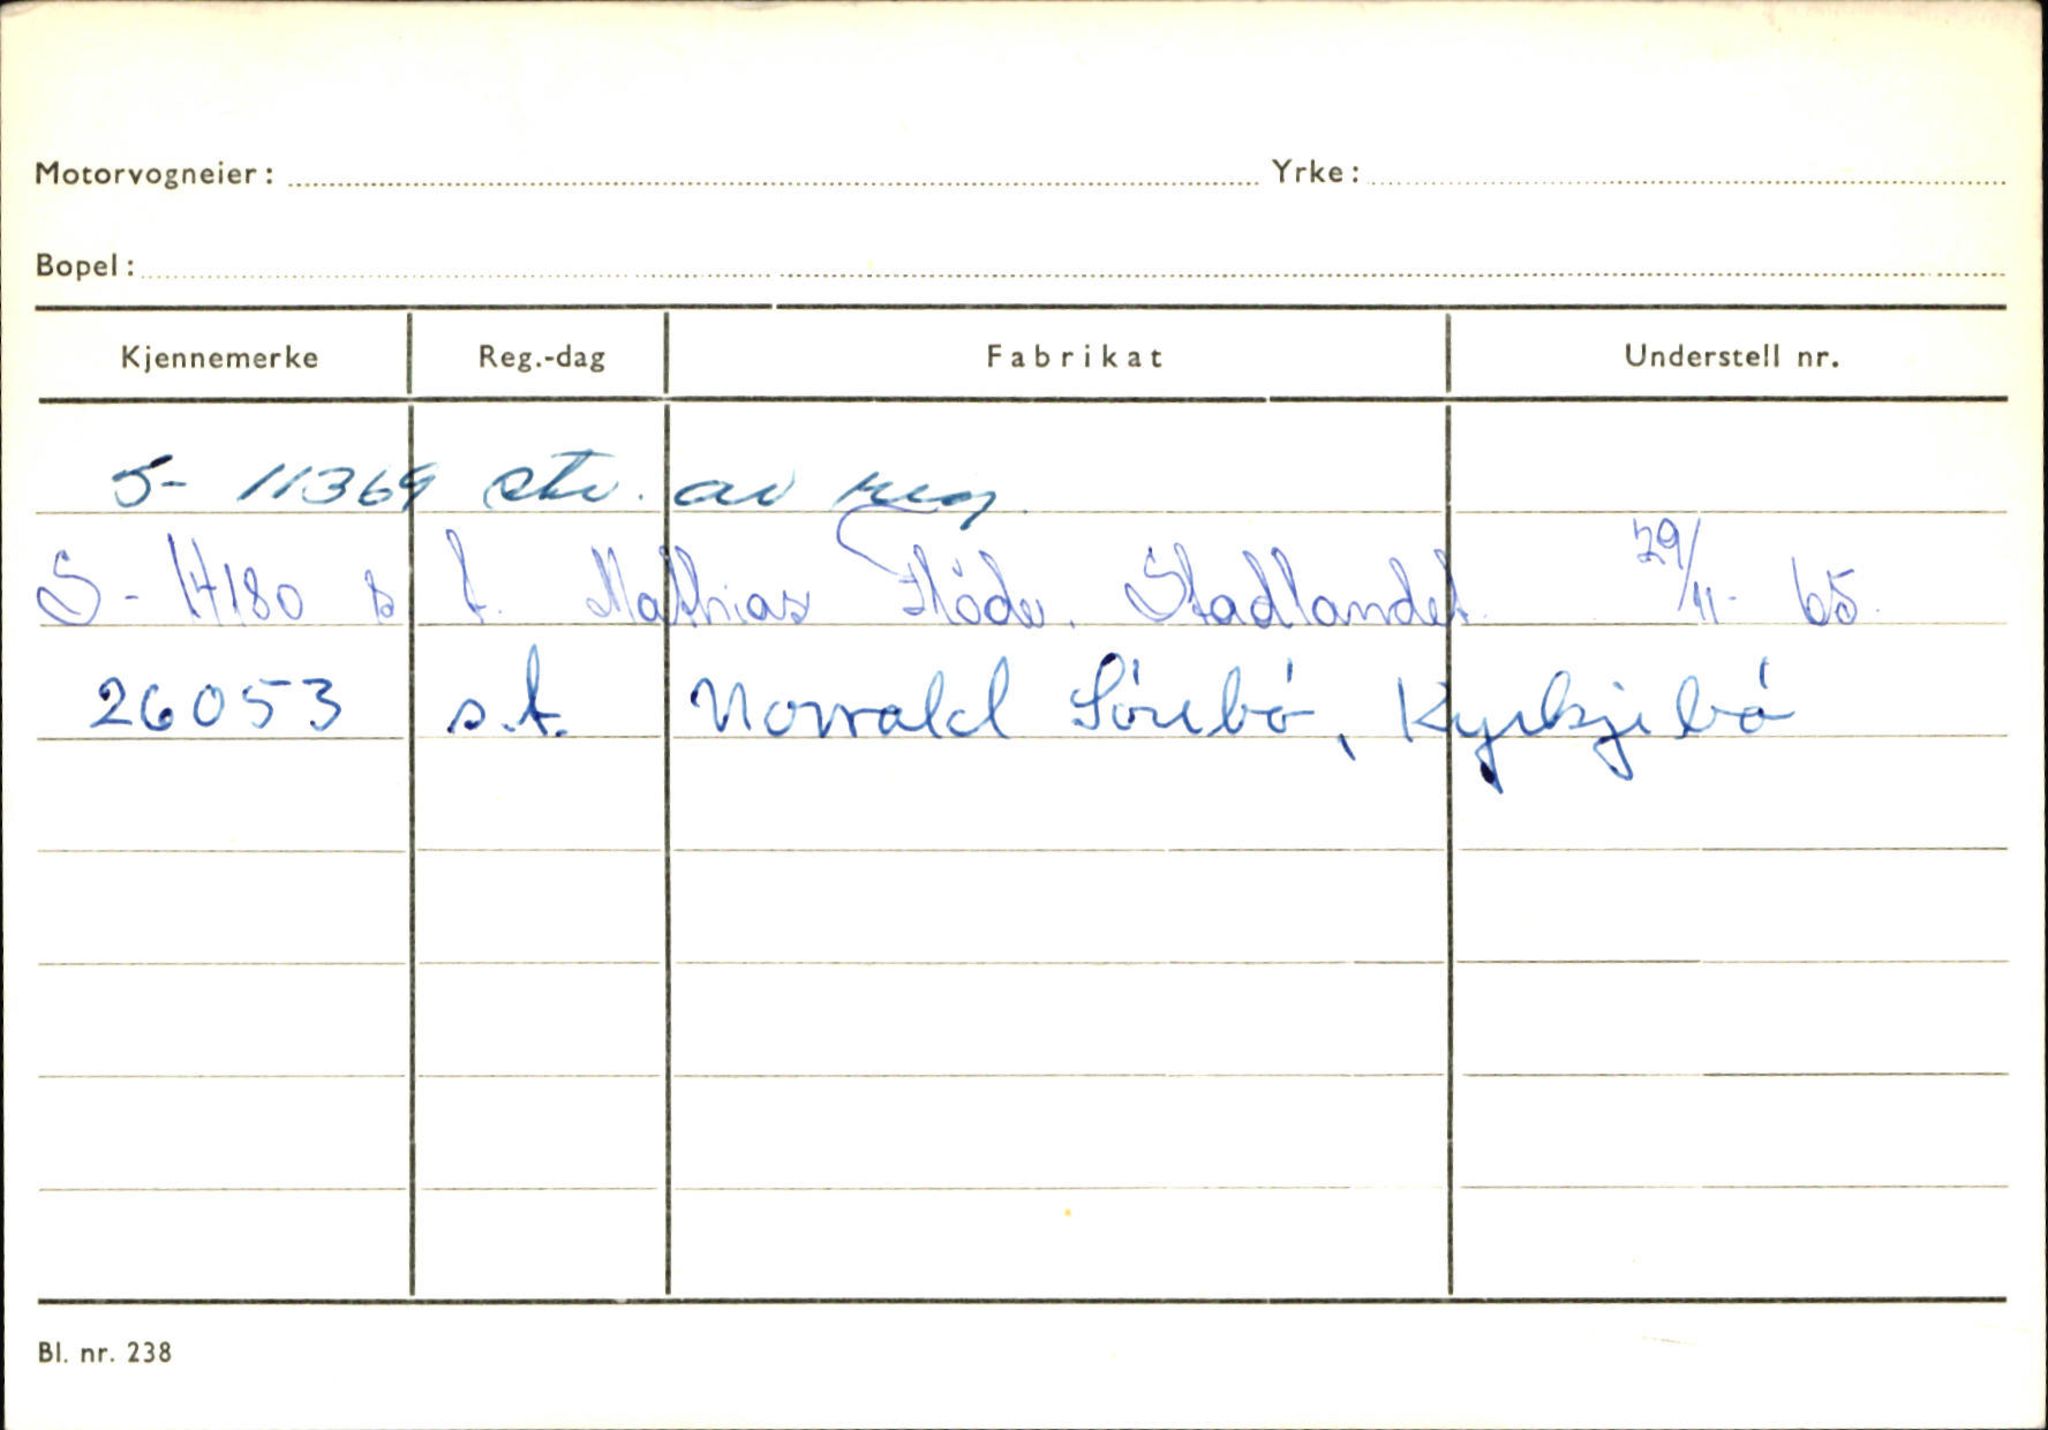 Motorvogneier: Yrke:
Bopel:
Kjennemerke Reg.-dag Fabrikat Understell nr.
S- 11369 str. av reg.
S- 14180 s t. Mathias Flöde. Stadlandet 29/11- 65.
26053 s.t. Norvald Sörebö, Kyrkjebö
Bl. nr. 238